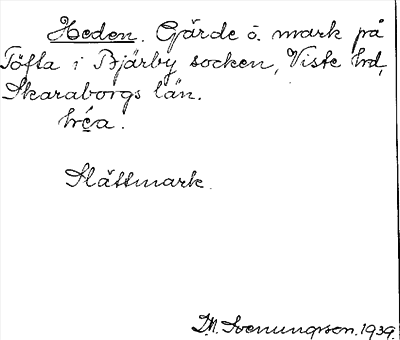 Heden. Gärde o. mark på
Töfta i Bjärby socken, Viste hrd,
Skaraborgs län.
hea.
Slättmark.
D.M. Svenungsson. 1939.